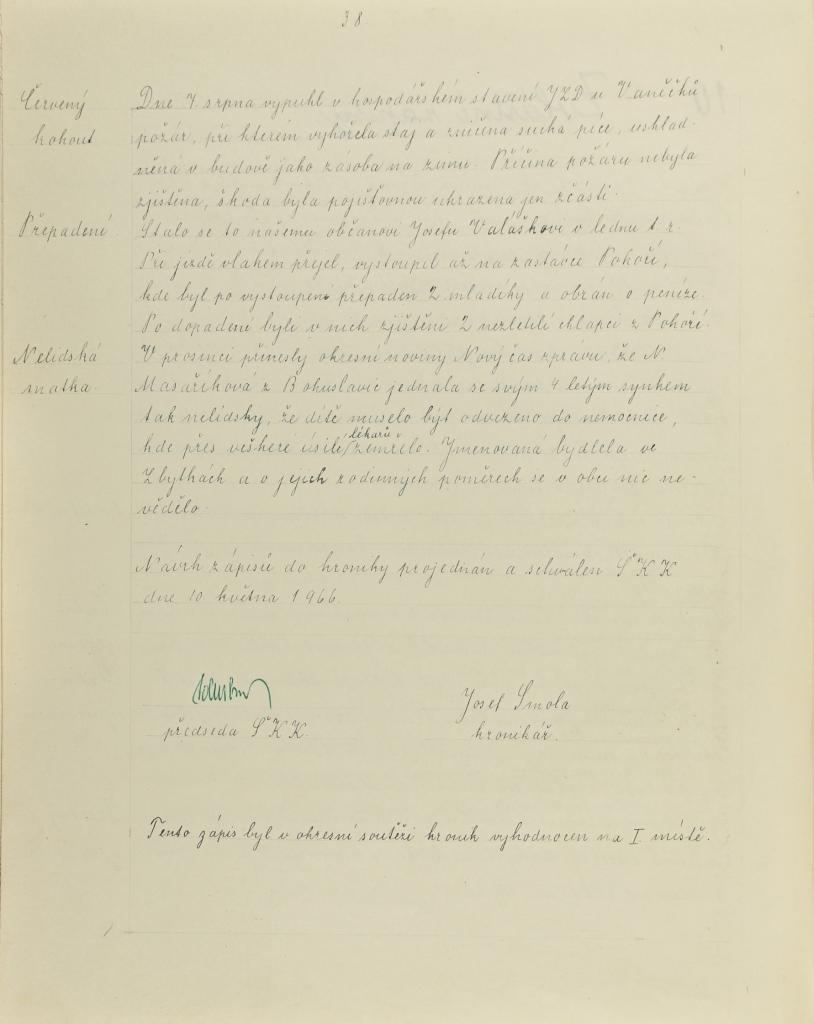 38
Červený
kohout
Dne 7. srpna vypukl v hospodářském stavení JZD u Vaněčků
požár, při kterém vyhořela staj a zničena suchá píce, usklad-
něná v budově jako zásoba na zimu. Příčina požáru nebyla
zjištěna, škoda byla pojišťovnou uhrazena jen zčásti.
Přepadení.
Stalo se to našemu občanovi Josefu Valáškovi v lednu t. r.
Při jízdě vlakem přejel, vystoupil až na zastávce Pohoří,
kde byl po vystoupení přepaden 2 mladíky a obrán o peníze.
Po dopadení byli v nich zjištěni 2 nezletilí chlapci z Pohoří.
Nelidská
matka.
V prosinci přinesly okresní noviny Nový čas zprávu, že N.
Masaříková z Bohuslavic jednala se svým 4 letým synkem
tak nelidsky, že dítě muselo být odvezeno do nemocnice,
kde přes veškeré úsilí/lékařů zemřelo. Jmenovaná bydlela ve
Zbytkách a o jejich rodinných poměrech se v obci nic ne-
vědělo.
Návrh zápisů do kroniky projednán a schválen ŠKK
dne 10 května 1966.
předseda ŠKK.
Josef Smola
kronikář.
Tento zápis byl v okresní soutěži kronik vyhodnocen na I. místě.